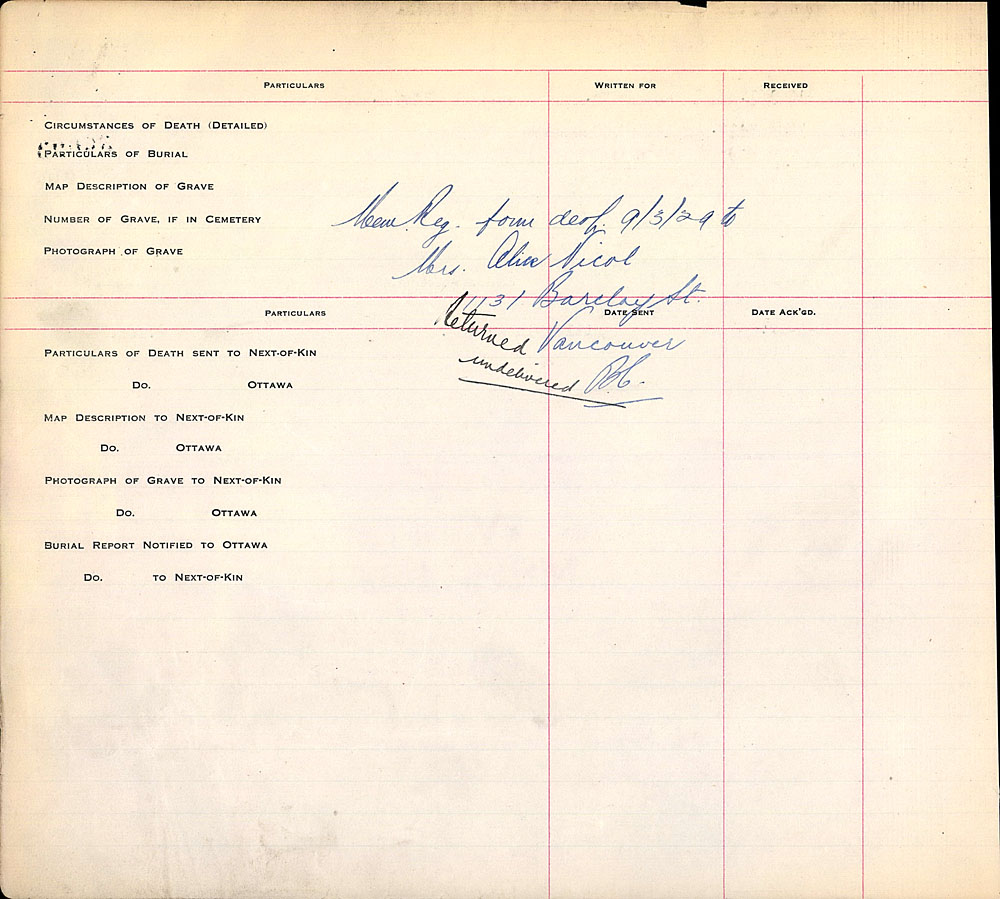 PARTICULARS WRITTEN FOR RECEIVED
CIRCUMSTANCES OF DEATH (DETAILED)
PARTICULARS OF BURIAL
MAP DESCRIPTION OF GRAVE
NUMBER OF GRAVE, IF IN CEMETERY
Mem. Reg. form desp. 9/3/29 to
PHOTOGRAPH OF GRAVE
Mrs. Alice Nicol
1131 Barclay St.
PARTICULARS DATE SENT DATE ACK'GD.
Vancouver
B.C.
Returned
undelivered
PARTICULARS OF DEATH SENT TO NEXT-OF-KIN
DO. OTTAWA
MAP DESCRIPTION TO NEXT-OF-KIN
DO. OTTAWA
PHOTOGRAPH OF GRAVE TO NEXT-OF-KIN
DO. OTTAWA
BURIAL REPORT NOTIFIED TO OTTAWA
DO. TO NEXT-OF-KIN